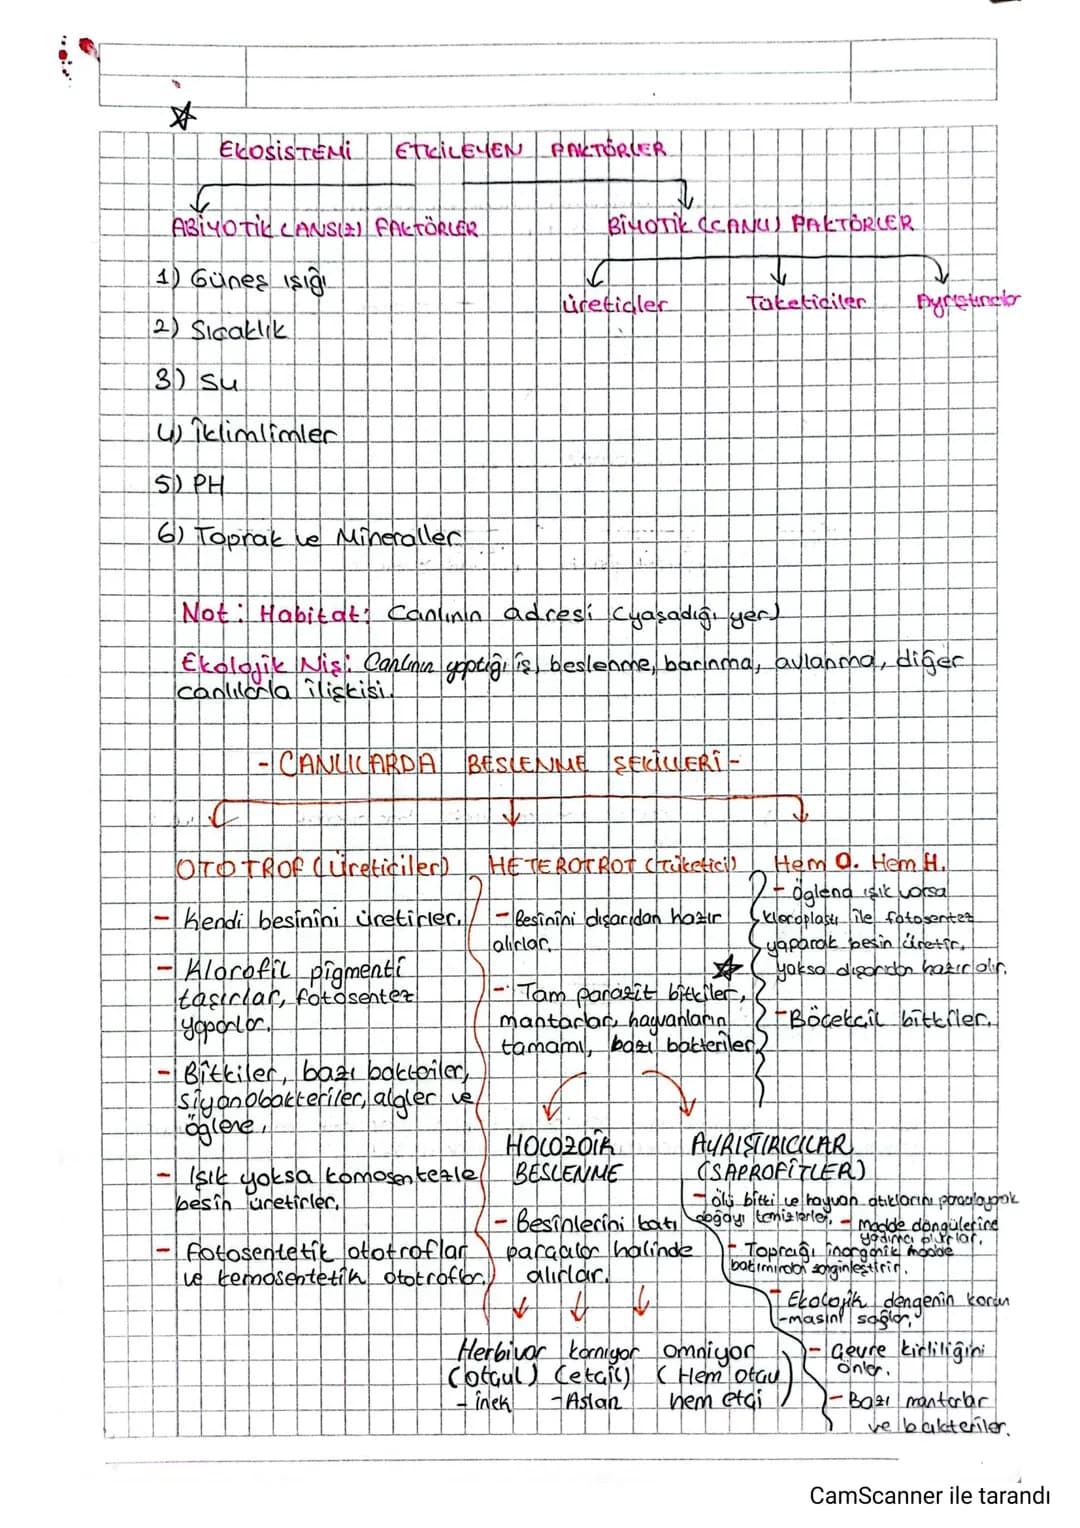 EKOSİSTEMİ ETKİLEYEN FAKTÖRLER
ABİYOTİK (CANSIZ) FAKTÖRLER
BİYOTİK (CANLI) FAKTÖRLER
1) Güneş ışığı
üreticiler Tüketiciler Ayrıştırıcılar
2) Sıcaklık
3) Su
4) İklimlimler
5) PH
6) Toprak ve Mineraller
Not: Habitat: Canlının adresi (yaşadığı yer)
Ekolojik Niş: Canlının yaptığı iş, beslenme, barınma, avlanma, diğer
canlılarla ilişkisi.
- CANLILARDA BESLENME ŞEKİLLERİ -
OTOTROF (Üreticiler)
- Kendi besinini üretirler.
- Klorofil pigmenti
taşırlar, fotosentez
yaparlar.
- Bitkiler, bazı bakteriler,
siyanobakteriler, algler ve
öglene,
- Işık yoksa komosentezle
besin üretirler.
- Fotosentetik ototroflar
ve kemosentetik ototroflar.
HETEROTROT (Tüketici)
- Besinini dışarıdan hazır
alırlar.
- Tam parazit bitkiler,
mantarlar, hayvanların
tamamı, bazı bakteriler.
Hem O. Hem H.
- Öglena ışık varsa
kloroplastı ile fotosentez
yaparak besin üretir,
yoksa dışarıdan hazır alır.
- Böcekcil bitkiler.
HOLOZOİK
BESLENME
- Besinlerini katı
parçalar halinde
alırlar.
Herbivor karnıyor omniyor
(otçul) (etçil) (Hem otçu
- inek - Aslan hem etçi)
AYRIŞTIRICILAR
(SAPROFİTLER)
- ölü bitki ve hayvan atıklarını parçalayarak
doğayı temizlerler. - madde döngülerine
yardımcı olurlar.
- Toprağı inorganik madde
bakımından zenginleştirir.
- Ekolojik dengenin korun
-masını sağlar.
- Çevre kirliliğini
önler.
- Bazı mantarlar
ve bakteriler.
CamScanner ile tarandı